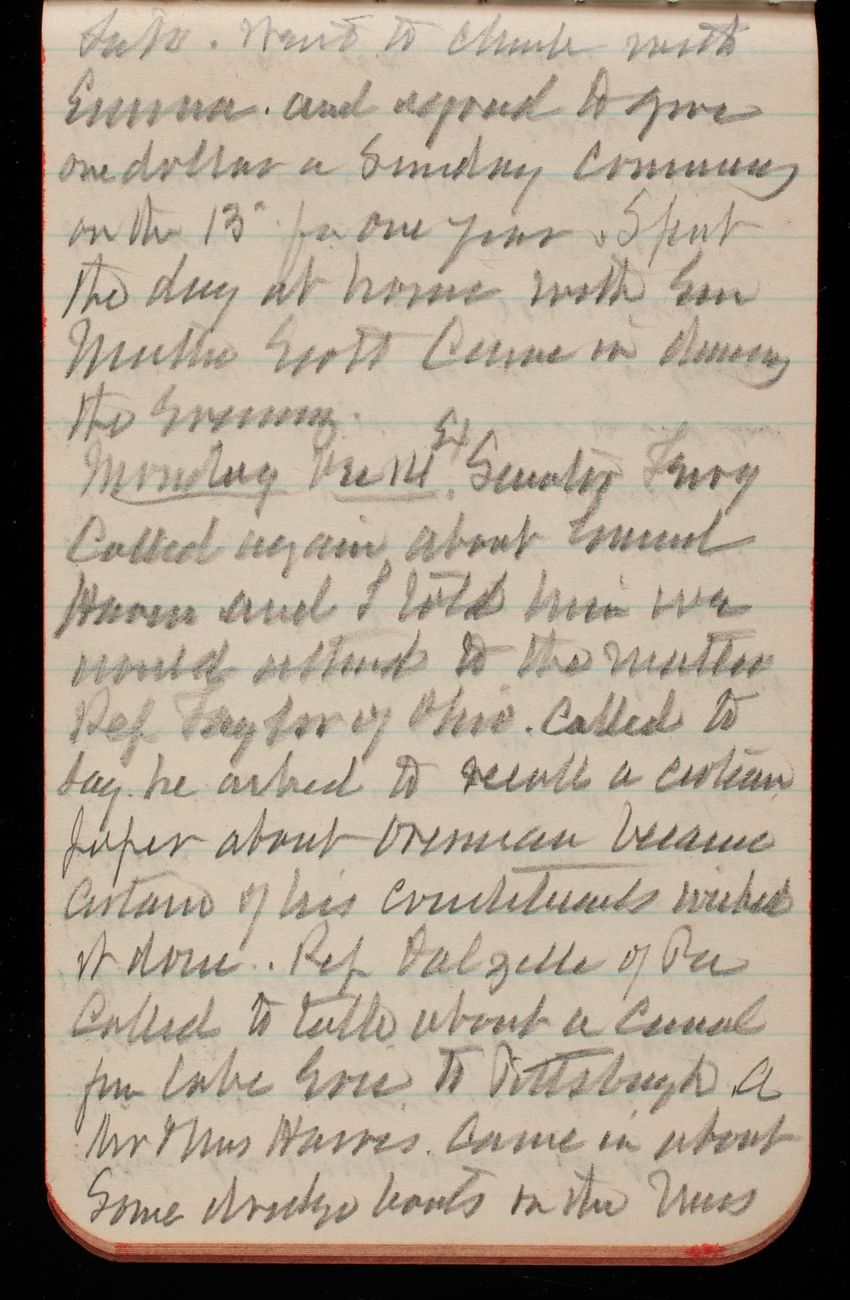 late. Went to Church with
Emma. and agreed to give
one dollar a Sunday Commencing
on the 13" for one year. Spent
the day at home with Em
Mattie Scott Came in during
the Evening.
Monday Dec 14. Ex Senator Ferry
Called again about
Haven and I told him we
would attend to the matter
Rep Taylor of Ohio. Called to
say. he asked to recall a certain
paper about because
Certain of his Constituents wished
it done.. Rep Dalzelle of Pa
Called to talk about a Canal
from lake Erie to Pittsburgh. A
Mr & Mrs Harris. Came in about
Some dredge boats on the Miss